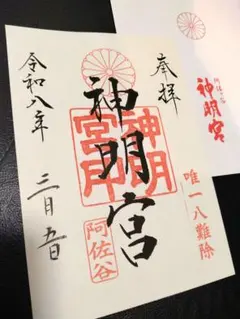 奉拝
唯一八難除
神明宮
神明宮印
阿佐谷
令和八年
三月五日
阿佐ヶ谷
神明宮